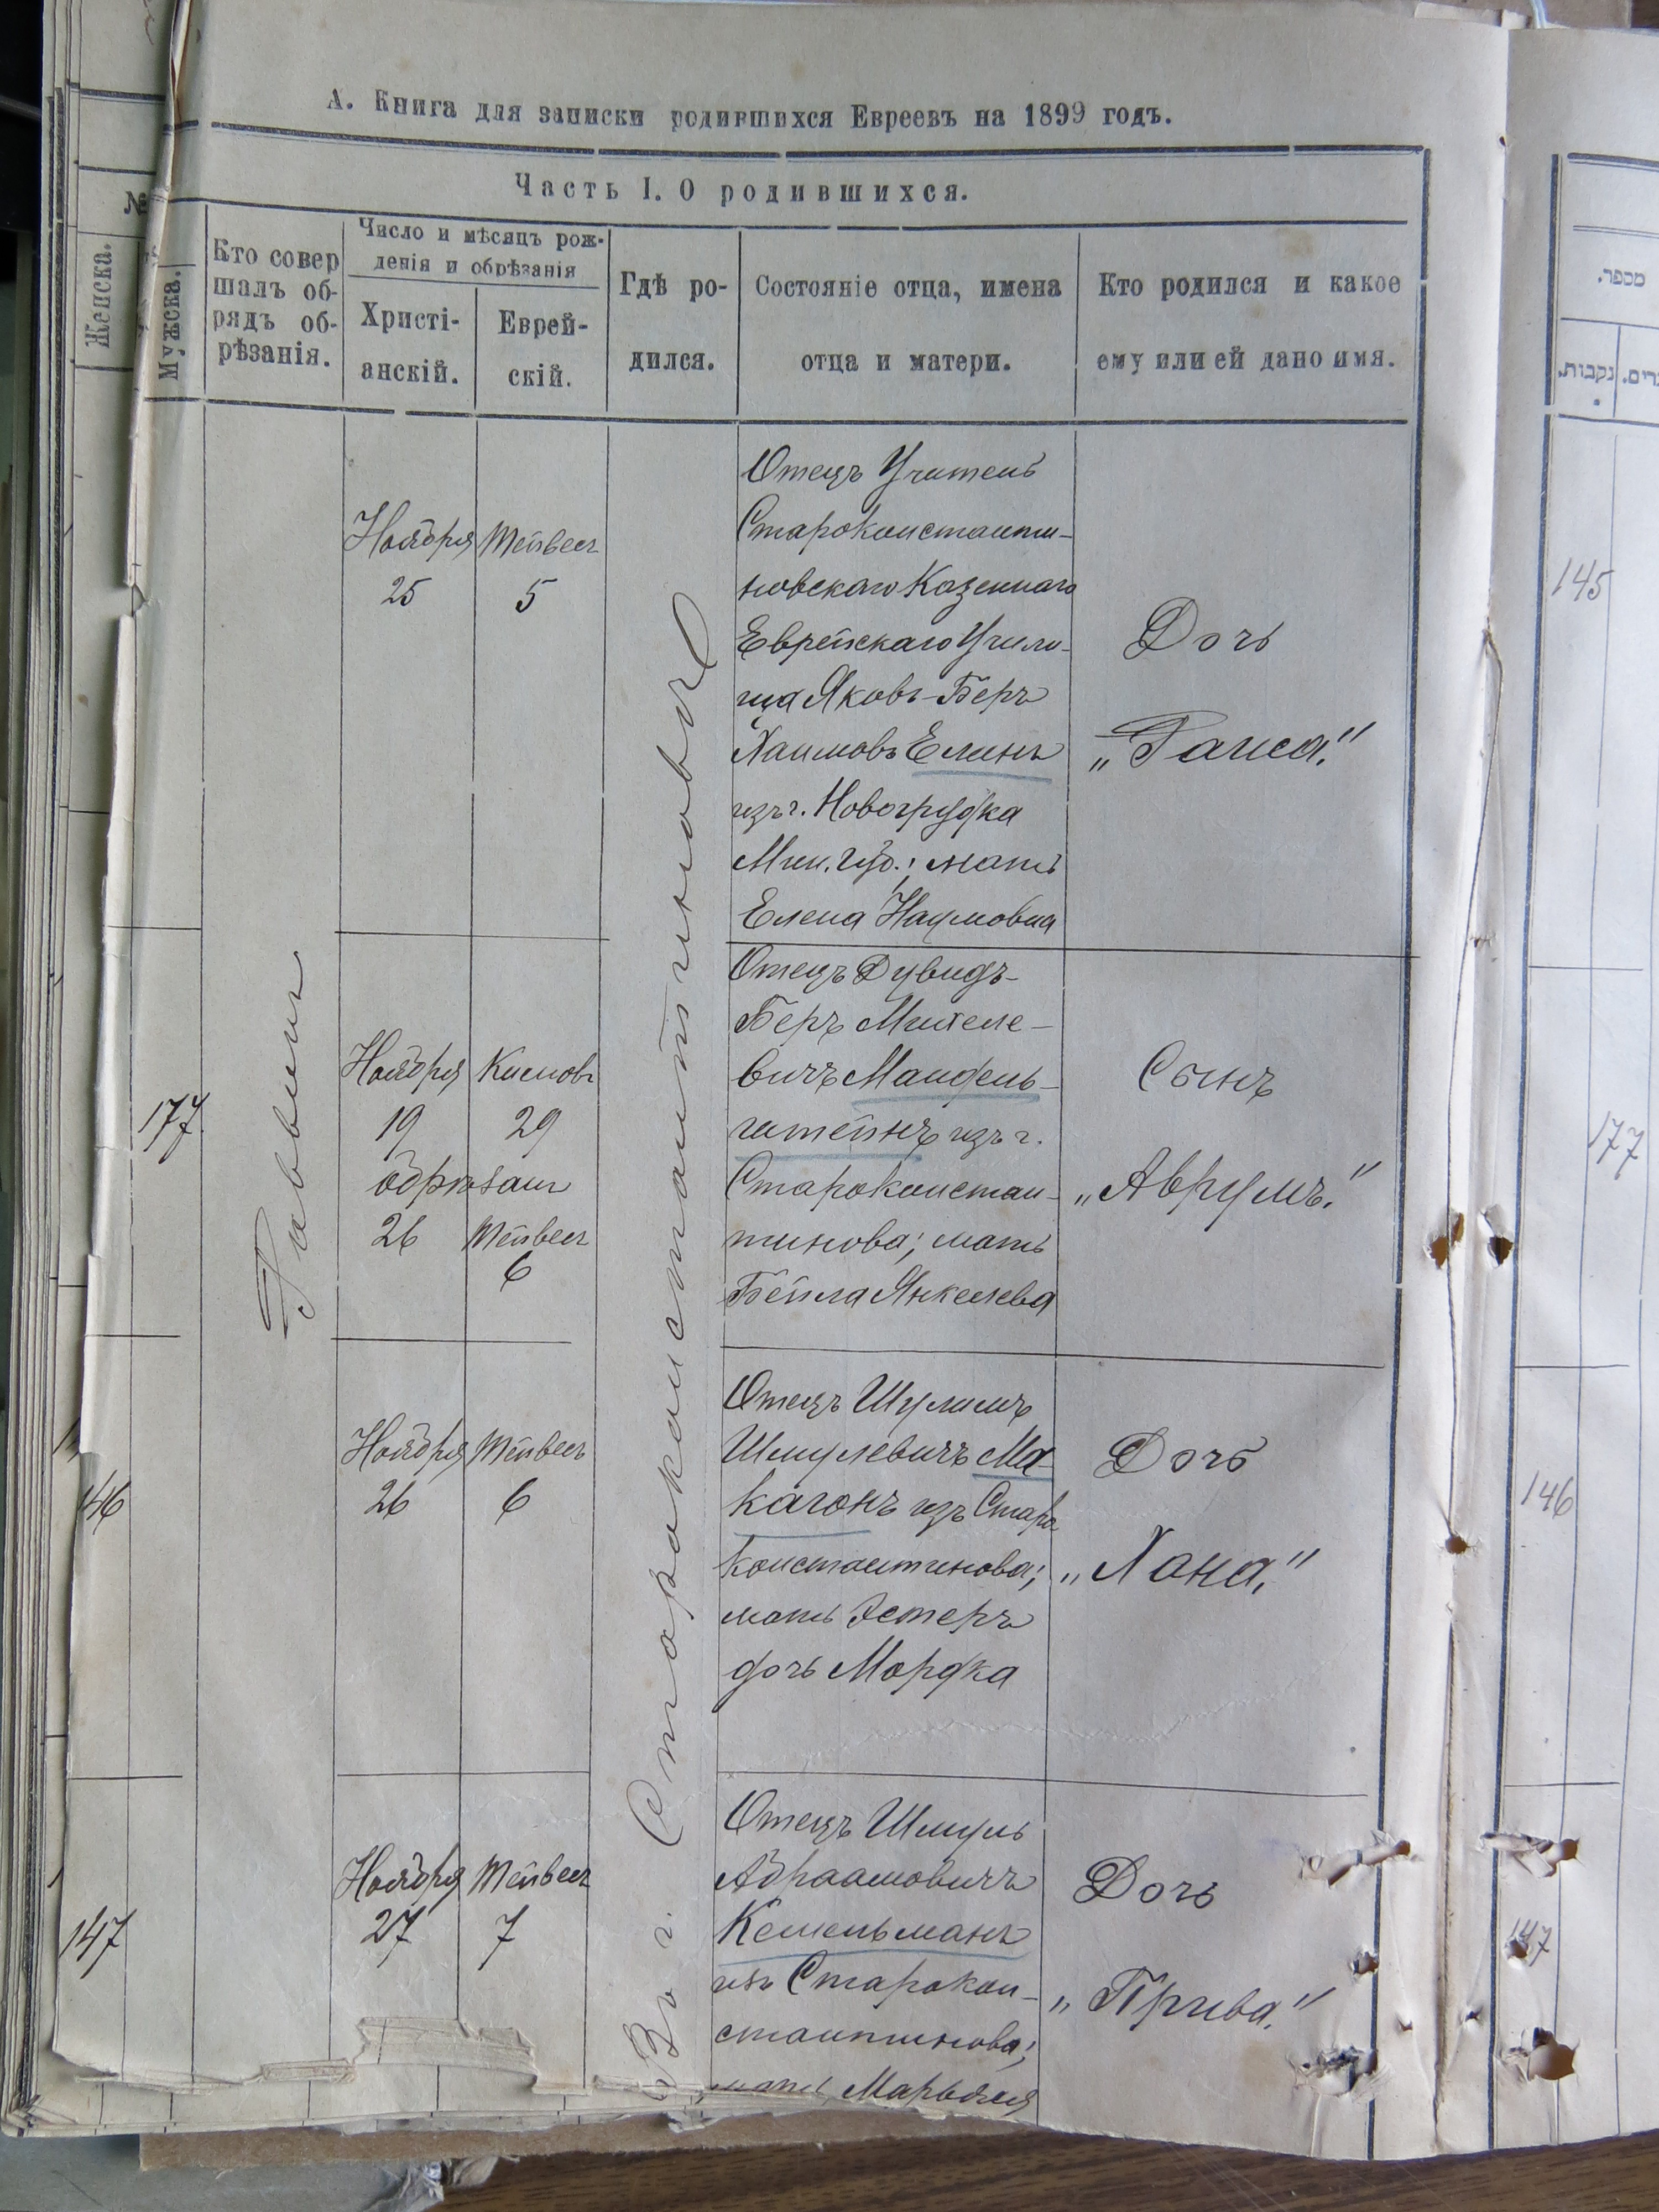 А. Книга для записки родившихся Евреевъ на 1899 годъ.
Часть I. О родившихся.
№
Женска.
Мужска.
Кто совер
шалъ об-
рядъ об-
рѣзанія.
Число и мѣсяцъ рож-
денія и обрѣзанія
Христі-
анскій.
Еврей-
скій.
Гдѣ ро-
дился.
Состояніе отца, имена
отца и матери.
Кто родился и какое
ему или ей дано имя.
מספר.
נקבות.
Раввинъ
Въ г. Староконстантиновѣ
Ноября
25
Тейвесъ
5
Отецъ Учитель
Староконстанти-
новскаго Казеннаго
Еврейскаго Учили-
ща Яковъ-Беръ
Хаимовъ Елинъ
изъ г. Новогрудка
Мин. губ.; мать
Елена Наумовна
Дочь
„Раиса."
145
177.
Ноября
19
обрѣзанъ
26
Кислевъ
29
Тейвесъ
6
Отецъ Дувидъ-
Беръ Михеле-
вичъ Мандель-
штейнъ изъ г.
Староконстан-
тинова; мать
Бейла Янкелева
Сынъ
„Аврумъ."
177
146
Ноября
26
Тейвесъ
6
Отецъ Шулимъ
Шмулевичъ Ма-
кагонъ изъ Старо
константинова;
мать Эстеръ
дочь Мордка
Дочь
„Хана."
146
147
Ноября
27
Тейвесъ
7
Отецъ Шмуль
Абраамовичъ
Кемельманъ
изъ Старокон-
стантинова;
мать Марьямъ
Дочь
„Прива."
147